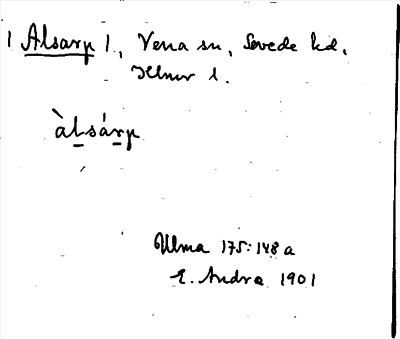 | Alsarp |, Vena sn, Sevede hd,
Kalmar l.
àlsárp
Ulma 175:148 a
E. Andra 1901